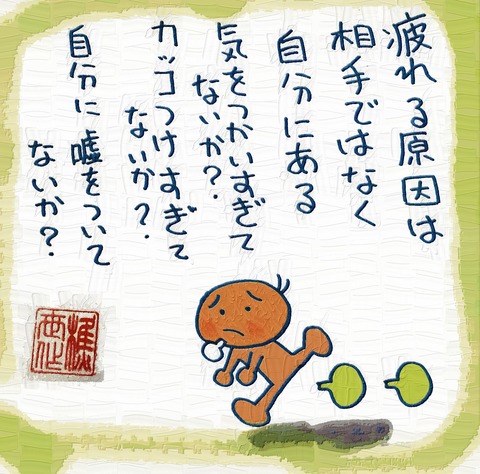 疲れる原因は
相手ではなく
自分にある
気をつかいすぎて
ないか?
カッコつけすぎて
ないか?
自分に嘘をついて
ないか?